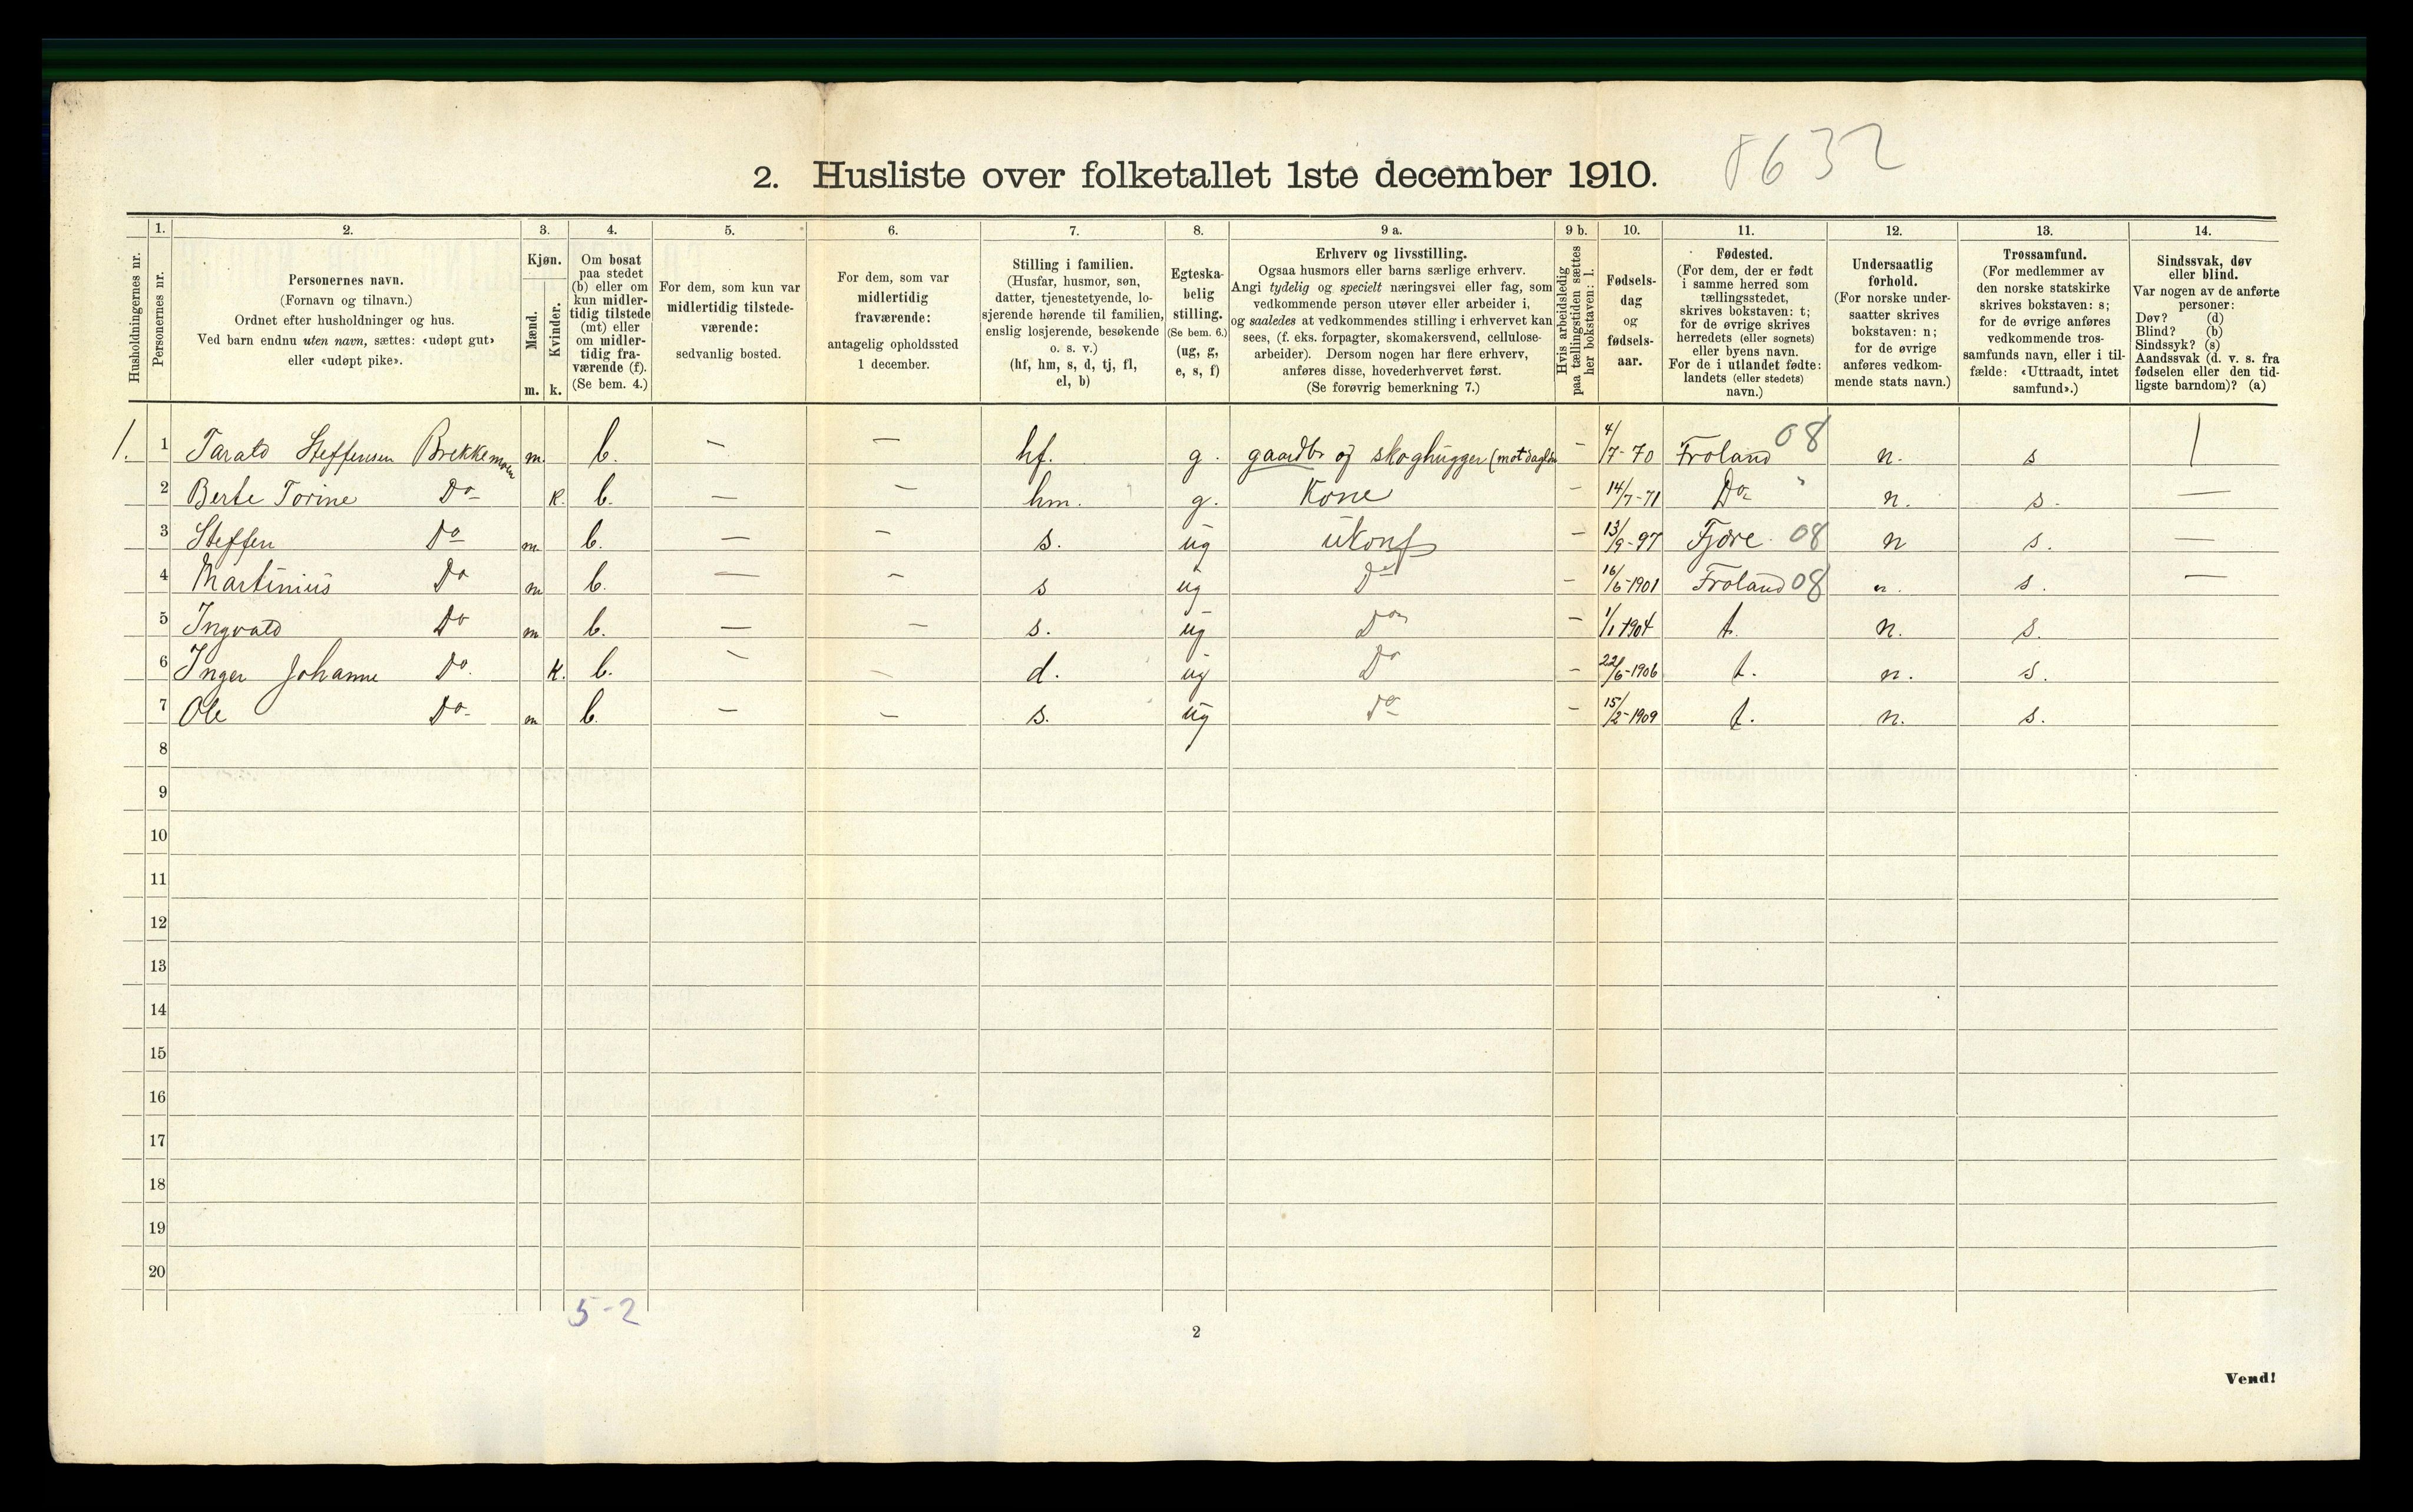 8632
2. Husliste over folketallet 1ste december 1910.
Husholdningernes nr.
1.
Personernes nr.
2.
Personernes navn.
(Fornavn og tilnavn.)
Ordnet efter husholdninger og hus.
Ved barn endnu uten navn, sættes: «udøpt gut»
eller «udøpt pike».
3.
Kjøn.
Mænd.
Kvinder.
m. k.
4.
Om bosat
paa stedet
(b) eller om
kun midler-
tidig tilstede
(mt) eller
om midler-
tidig fra-
værende (f).
(Se bem. 4.)
5.
For dem, som kun var
midlertidig tilstede-
værende:
sedvanlig bosted.
6.
For dem, som var
midlertidig
fraværende:
antagelig opholdssted
1 december.
7.
Stilling i familien.
(Husfar, husmor, søn,
datter, tjenestetyende, lo-
sjerende hørende til familien,
enslig losjerende, besøkende
o. s. v.)
(hf, hm, s, d, tj, fl,
el, b)
8.
Egteska-
belig
stilling.
(Se bem. 6.)
(ug, g,
e, s, f)
9 a.
Erhverv og livsstilling.
Ogsaa husmors eller barns særlige erhverv.
Angi tydelig og specielt næringsvei eller fag, som
vedkommende person utøver eller arbeider i,
og saaledes at vedkommendes stilling i erhvervet kan
sees, (f. eks. forpagter, skomakersvend, cellulose-
arbeider). Dersom nogen har flere erhverv,
anføres disse, hovederhvervet først.
(Se forøvrig bemerkning 7.)
9 b.
Hvis arbeidsledig
paa tællingstiden sættes
her bokstaven: l.
10.
Fødsels-
dag
og
fødsels-
aar.
11.
Fødested.
(For dem, der er født
i samme herred som
tællingsstedet,
skrives bokstaven: t;
for de øvrige skrives
herredets (eller sognets)
eller byens navn.
For de i utlandet fødte:
landets (eller stedets)
navn.)
12.
Undersaatlig
forhold.
(For norske under-
saatter skrives
bokstaven: n;
for de øvrige
anføres vedkom-
mende stats navn.)
13.
Trossamfund.
(For medlemmer av
den norske statskirke
skrives bokstaven: s;
for de øvrige anføres
vedkommende tros-
samfunds navn, eller i til-
fælde: «Uttraadt, intet
samfund».)
14.
Sindssvak, døv
eller blind.
Var nogen av de anførte
personer:
Døv? (d)
Blind? (b)
Sindssyk? (s)
Aandssvak (d. v. s. fra
fødselen eller den tid-
ligste barndom)? (a)
1. 1 Tarald Steffensen Brekkemoen m. b. — — hf. g. gaardbr og skoghugger (mot dagløn - 4/7-70 Froland 08 n. s |
2 Berte Torine Do k. b. — — hm. g. Kone - 14/7-71 Do " n. s. —
3 Steffen Do m b. — — s. ug ukonf - 13/9-97 Fjære 08 n s. —
4 Martinius Do m b. — — s ug Do - 16/5-1901 Froland 08 n. s. —
5 Ingvald Do m b. — — s. ug Do - 1/1-1904 t. n. s.
6 Inger Johanne Do. k. b. — — d. ug Do - 22/6-1906 t. n. s.
7 Ole Do m b. — — s. ug do - 15/2-1909 t. n. s.
8
9
10
11
12
13
14
15
16
17
18
19
20
5-2
2
Vend!